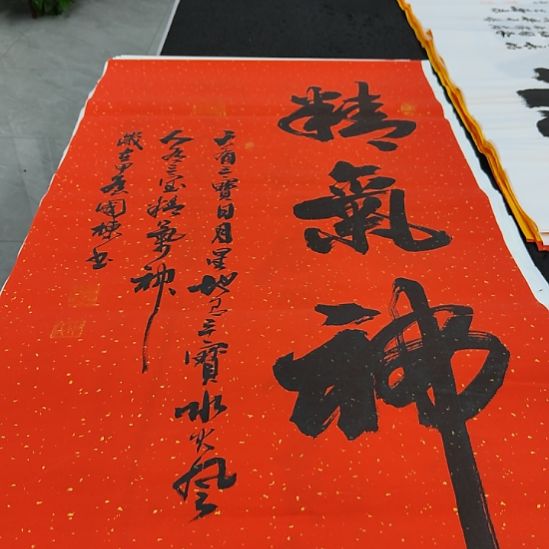 精氣神
天有三寶日月星地有三寶水火風
人有三寶精氣神
歲在甲辰國棟書